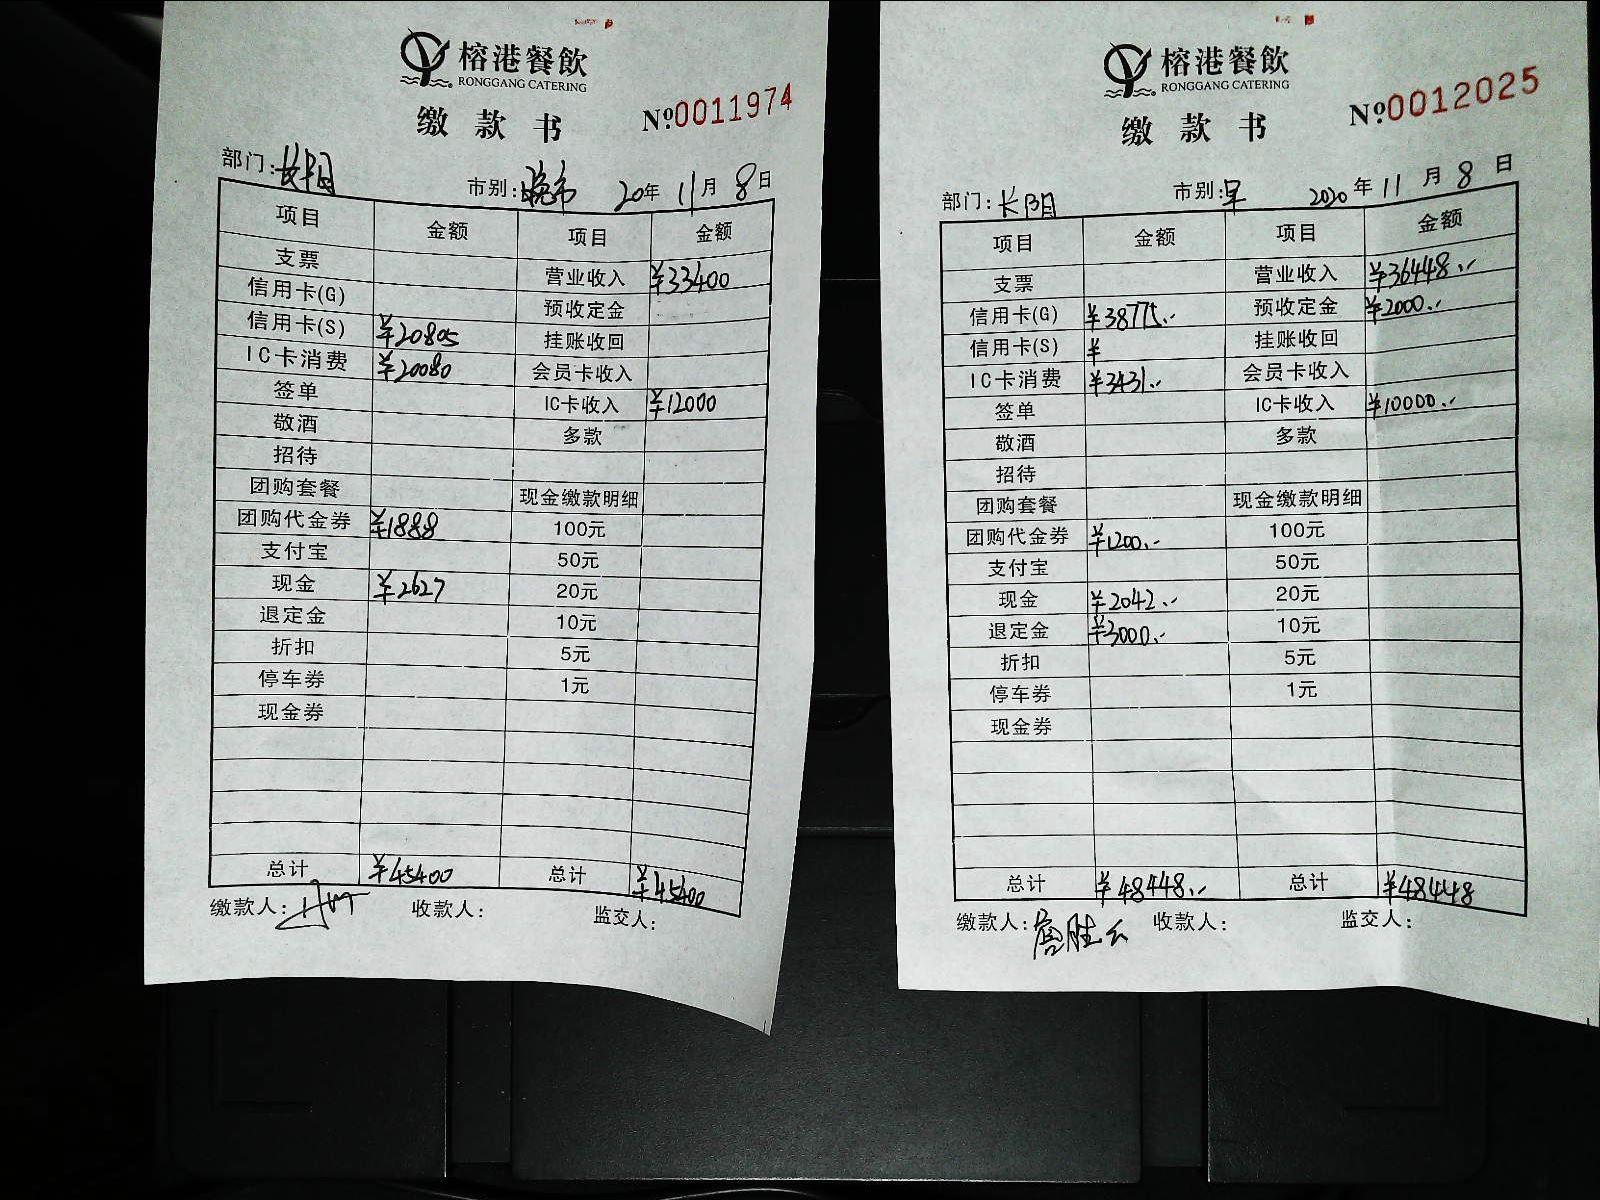 榕港餐飲
RONGGANG CATERING
缴款书
№0011974
部门:长阳 市别:晚市 20年 11月 8日
项目 金额 项目 金额
支票 营业收入 ¥33400
信用卡(G) 预收定金
信用卡(S) ¥20805 挂账收回
IC卡消费 ¥20080 会员卡收入
签单 IC卡收入 ¥12000
敬酒 多款
招待
团购套餐 现金缴款明细
团购代金券 ¥1888 100元
支付宝 50元
现金 ¥2627 20元
退定金 10元
折扣 5元
停车券 1元
现金券
总计 ¥45400 总计 ¥45400
缴款人: 收款人: 监交人:
榕港餐飲
RONGGANG CATERING
缴款书
№0012025
部门:长阳 市别:早 2020年 11月 8日
项目 金额 项目 金额
支票 营业收入 ¥36448.--
信用卡(G) ¥38775.-- 预收定金 ¥2000.--
信用卡(S) ¥ 挂账收回
IC卡消费 ¥3431.-- 会员卡收入
签单 IC卡收入 ¥10000.--
敬酒 多款
招待
团购套餐 现金缴款明细
团购代金券 ¥1200.-- 100元
支付宝 50元
现金 ¥2042.-- 20元
退定金 ¥3000.-- 10元
折扣 5元
停车券 1元
现金券
总计 ¥48448.-- 总计 ¥48448
缴款人: 收款人: 监交人: